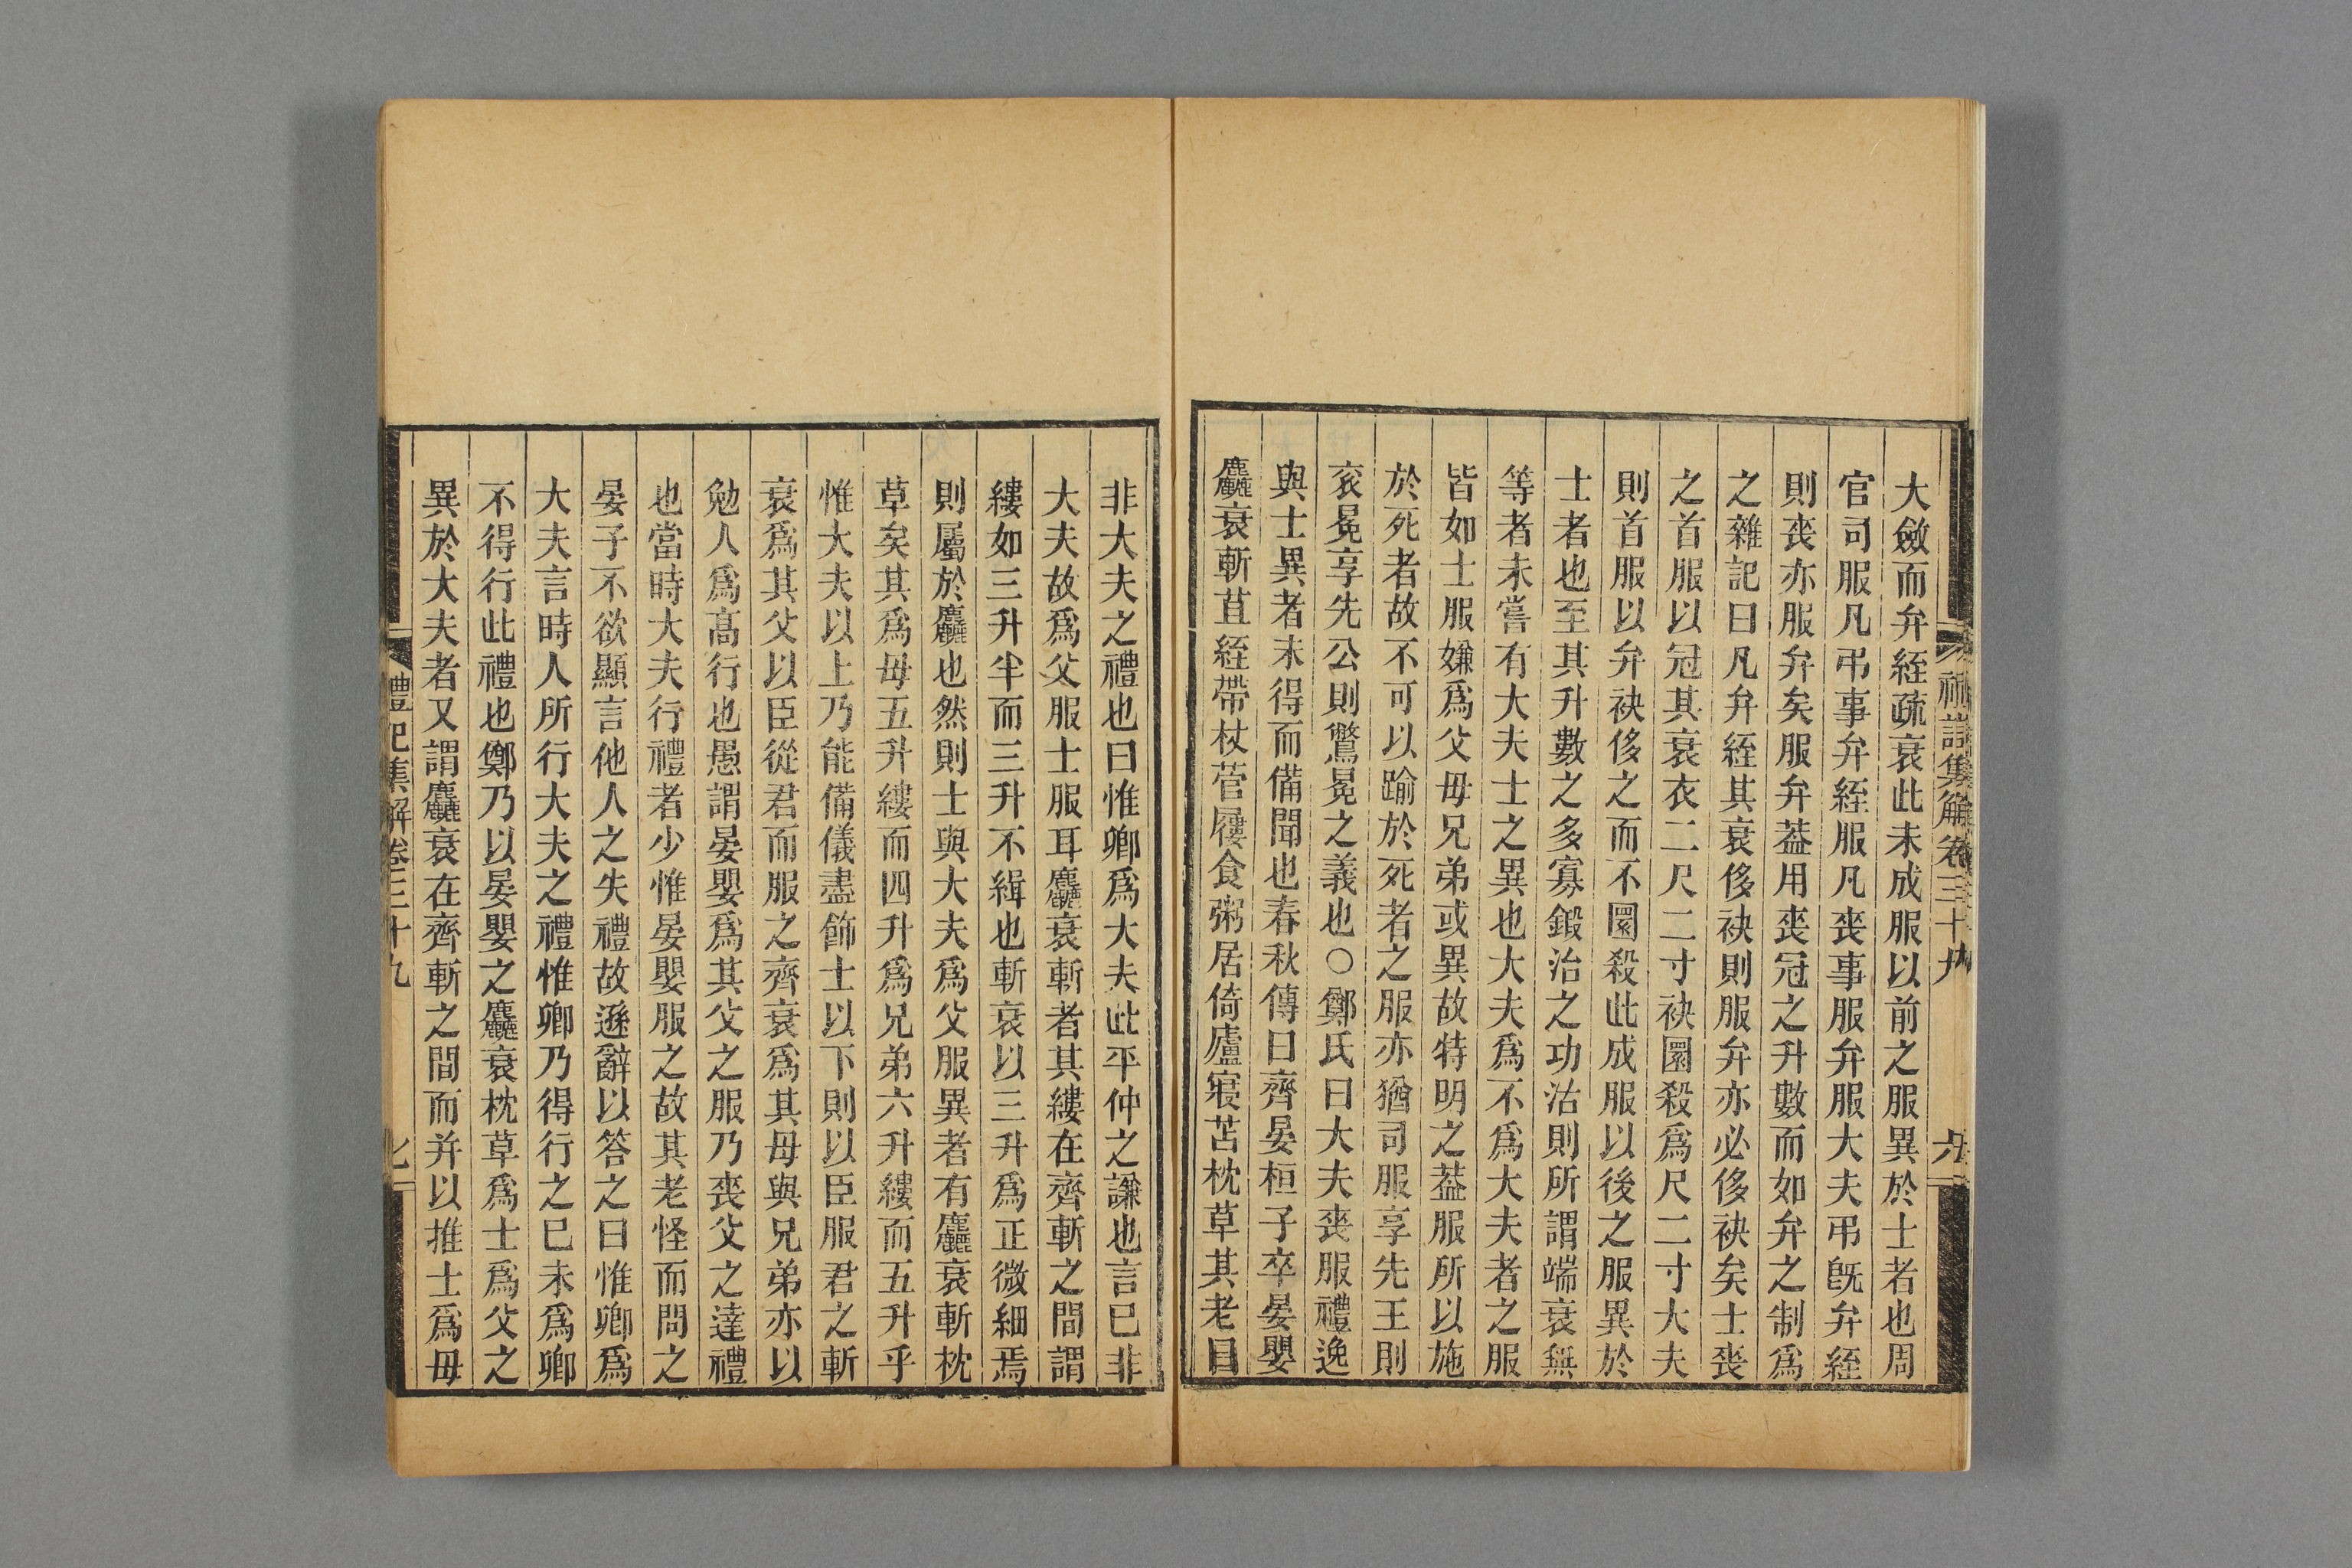 禮記集解卷三十九
六
大斂而弁絰疏衰此未成服以前之服異於士者也周
官司服凡弔事弁絰服凡喪事服弁服大夫弔旣弁絰
則喪亦服弁矣服弁葢用喪冠之升數而如弁之制爲
之雜記曰凡弁絰其衰侈袂則服弁亦必侈袂矣士喪
之首服以冠其衰衣二尺二寸袂圜殺爲尺二寸大夫
則首服以弁袂侈之而不圜殺此成服以後之服異於
士者也至其升數之多寡鍛治之功沽則所謂端衰無
等者未嘗有大夫士之異也大夫爲不爲大夫者之服
皆如士服嫌爲父母兄弟或異故特明之葢服所以施
於死者故不可以踰於死者之服亦猶司服享先王則
衮冕享先公則鷩冕之義也○鄭氏曰大夫喪服禮逸
與士異者未得而備聞也春秋傳曰齊晏桓子卒晏嬰
麤衰斬苴絰帶杖菅屨食粥居倚廬寢苫枕草其老曰
非大夫之禮也曰惟卿爲大夫此平仲之謙也言已非
大夫故爲父服士服耳麤衰斬者其縷在齊斬之間謂
縷如三升半而三升不緝也斬衰以三升爲正微細焉
則屬於麤也然則士與大夫爲父服異者有麤衰斬枕
草矣其爲母五升縷而四升爲兄弟六升縷而五升乎
惟大夫以上乃能備儀盡飾士以下則以臣服君之斬
衰爲其父以臣從君而服之齊衰爲其母與兄弟亦以
勉人爲高行也愚謂晏嬰爲其父之服乃喪父之達禮
也當時大夫行禮者少惟晏嬰服之故其老怪而問之
晏子不欲顯言他人之失禮故遜辭以答之曰惟卿爲
大夫言時人所行大夫之禮惟卿乃得行之已未爲卿
不得行此禮也鄭乃以晏嬰之麤衰枕草爲士爲父之
異於大夫者又謂麤衰在齊斬之間而并以推士爲母
禮記集解卷三十九
七